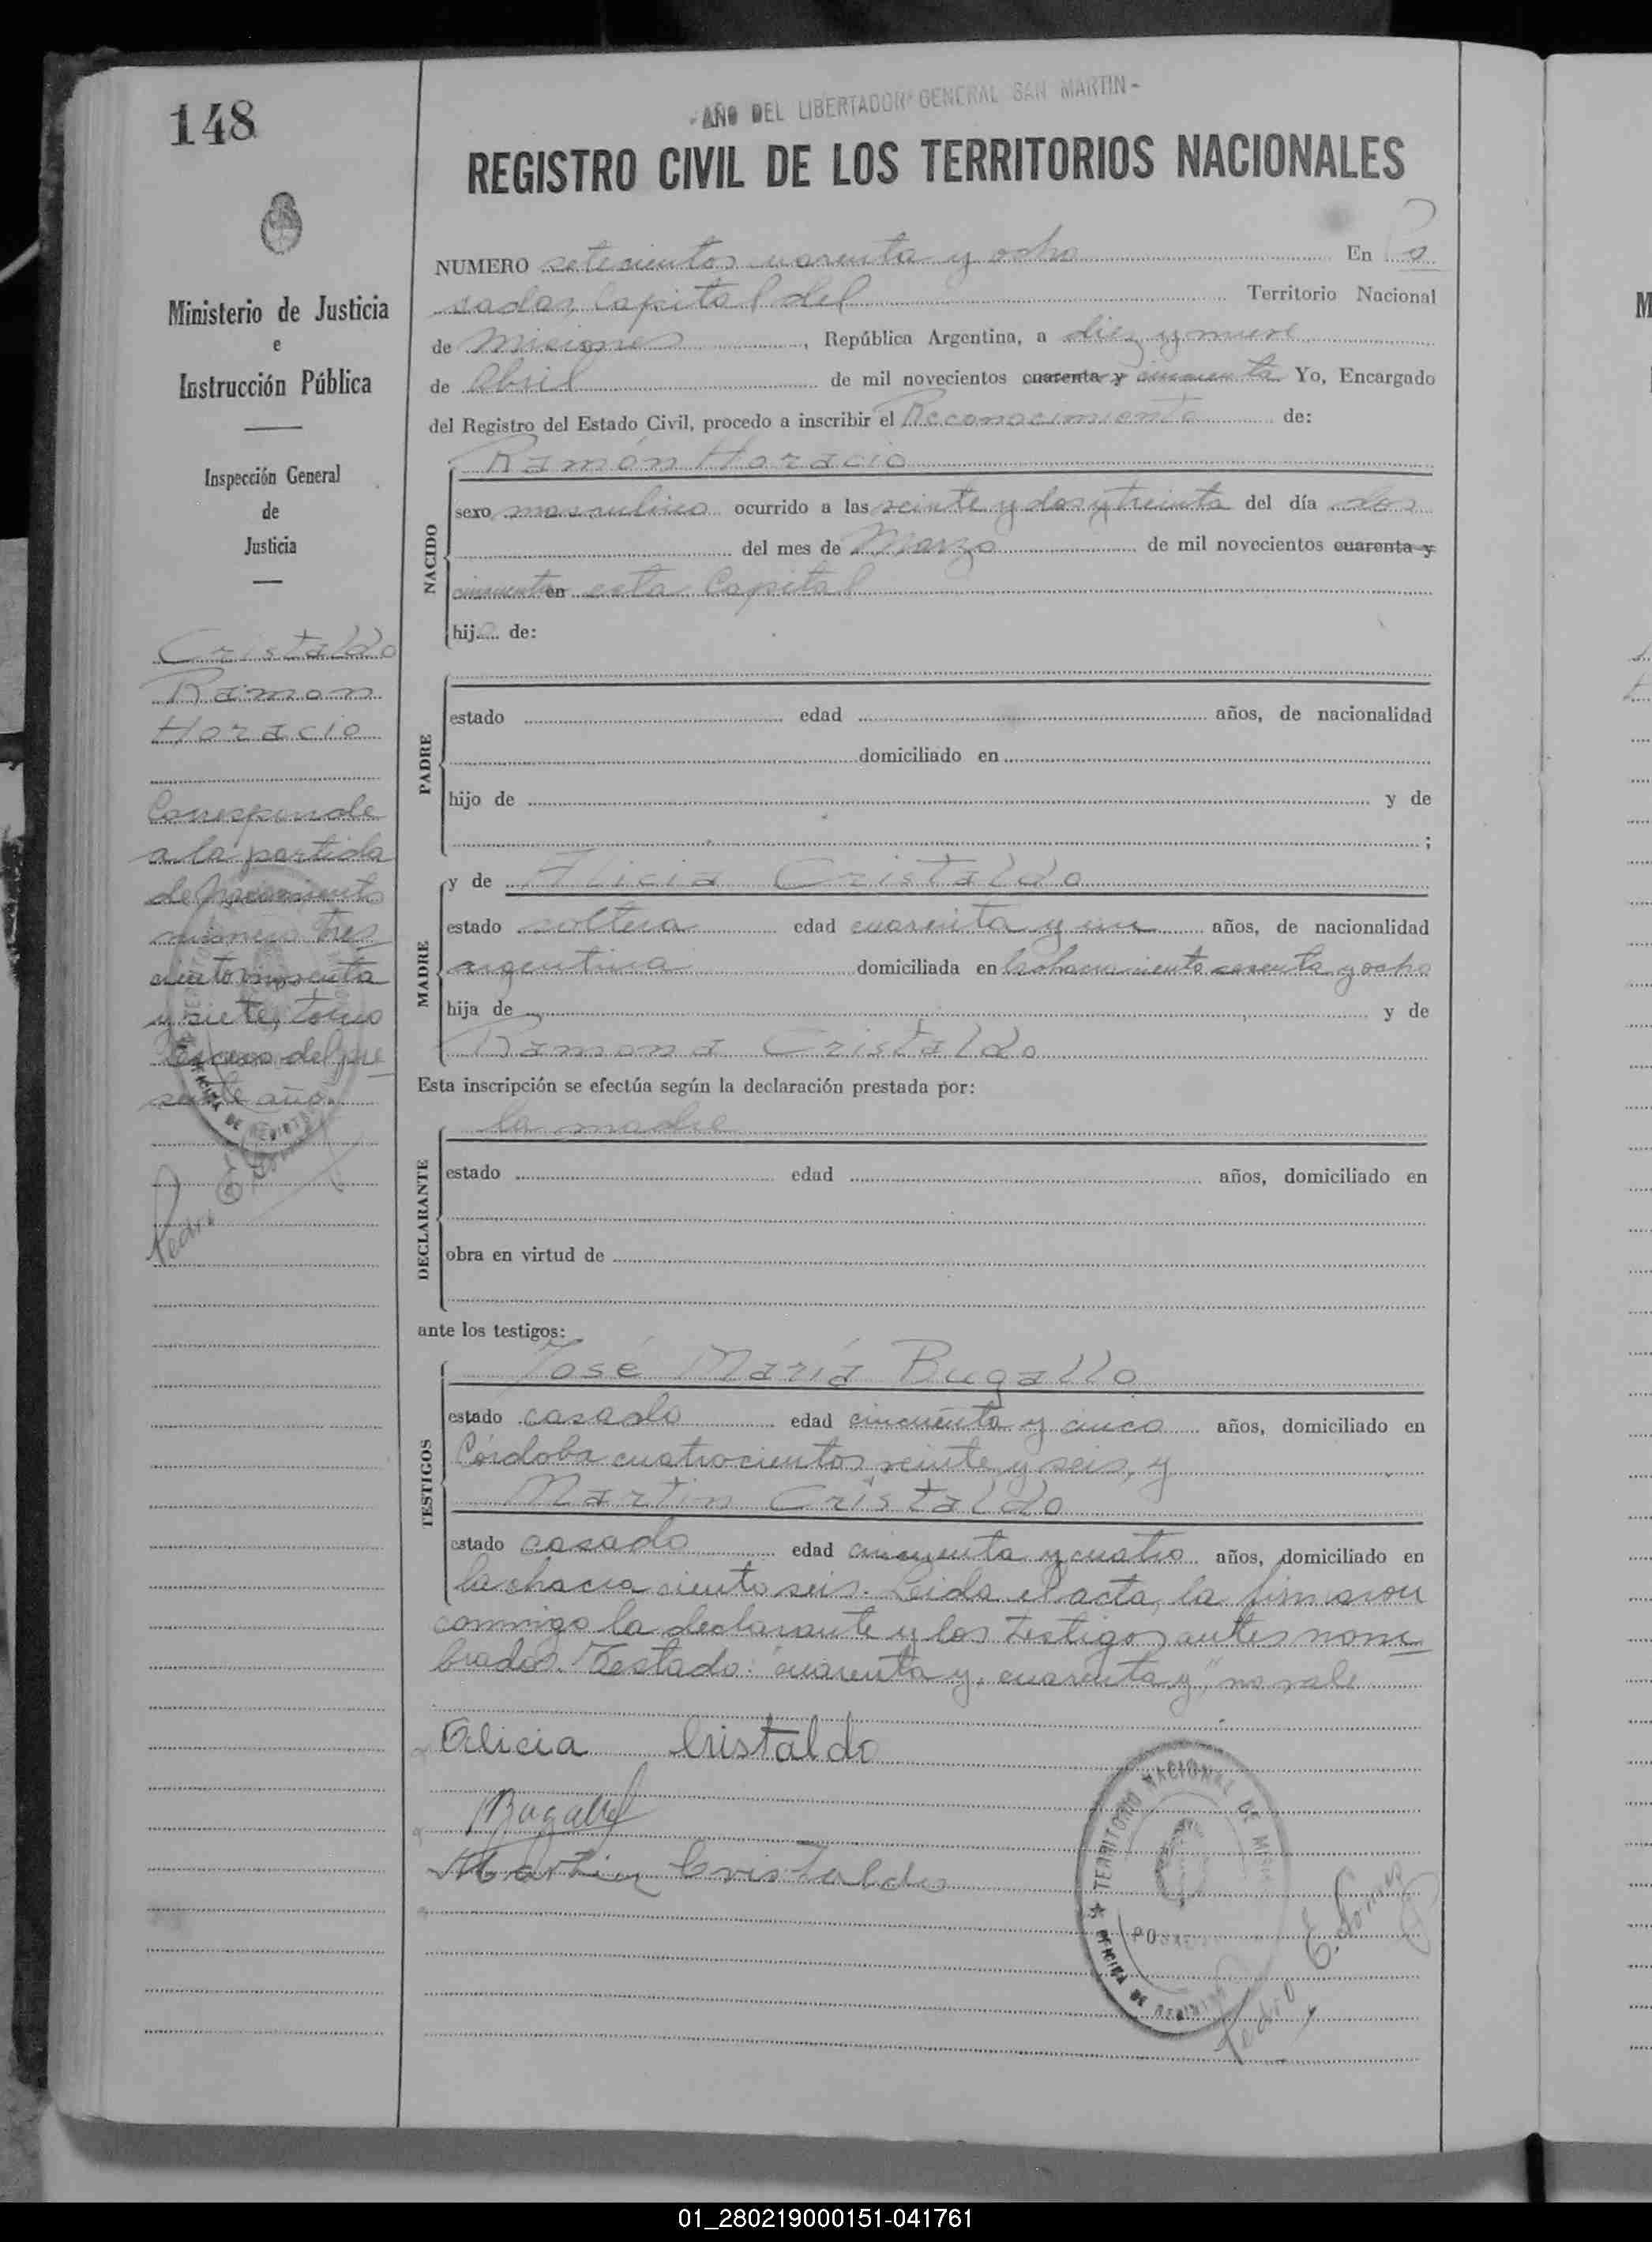 148
-AÑO DEL LIBERTADOR GENERAL SAN MARTIN-
REGISTRO CIVIL DE LOS TERRITORIOS NACIONALES
Ministerio de Justicia
e
Instrucción Pública
Inspección General
de
Justicia
Cristaldo
Ramon
Horacio
Corresponde
a la partida
de nacimiento
número tres
ciento noventa
y siete, tomo
tercero del pre
sente año.
NUMERO setecientos cuarenta y ocho En Po
sadas, Capital del Territorio Nacional
de Misiones, República Argentina, a diez y nueve
de Abril de mil novecientos cuarenta y cincuenta Yo, Encargado
del Registro del Estado Civil, procedo a inscribir el Reconocimiento de:
NACIDO
Ramón Horacio
sexo masculino ocurrido a las veinte y dos y treinta del día dos
del mes de Marzo de mil novecientos cuarenta y
cincuenta en esta Capital
hijo de:
PADRE
estado edad años, de nacionalidad
domiciliado en
hijo de y de
;
MADRE
y de Alicia Cristaldo
estado soltera edad cuarenta y un años, de nacionalidad
argentina domiciliada en la chacra ciento cuarenta y ocho
hija de y de
Ramona Cristaldo
Esta inscripción se efectúa según la declaración prestada por:
DECLARANTE
la madre
estado edad años, domiciliado en
obra en virtud de
ante los testigos:
TESTIGOS
José María Bugallo
estado casado edad cincuenta y cinco años, domiciliado en
Córdoba cuatrocientos veinte y seis, y
Martin Cristaldo
estado casado edad cincuenta y cuatro años, domiciliado en
la chacra ciento seis. Leida el acta, la firmaron
conmigo la declarante y los testigos antes nom
brados. Testado: "cuarenta y, cuarenta y", no vale
Alicia Cristaldo
Bugallo
Martin Cristaldo
TERRITORIO NACIONAL DE MISIONES
POSADAS
OFICINA DE REGISTRO
Pedro E. Gomez
01_280219000151-041761